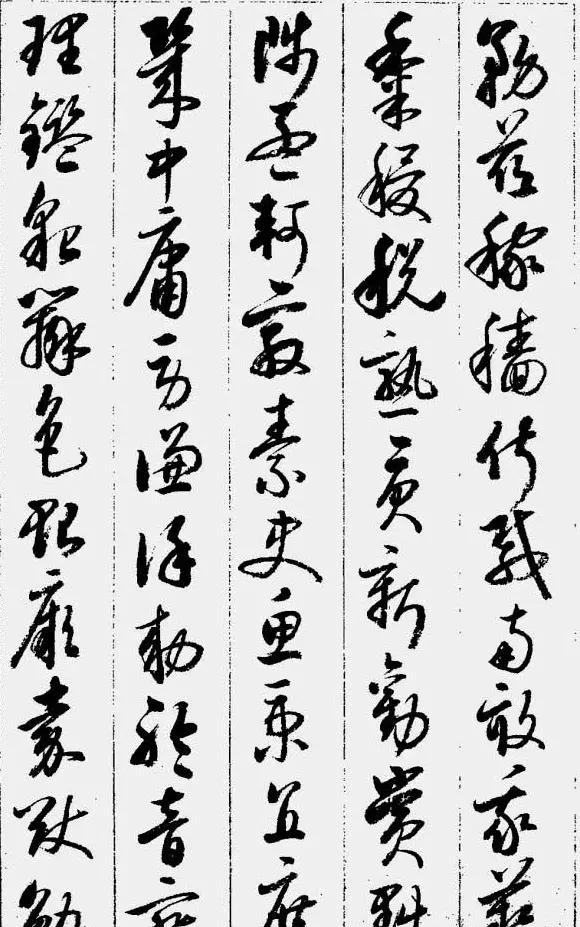 務茲稼穡俶載南畝我藝
黍稷稅熟貢新勸賞黜
陟孟軻敦素史魚秉直庶
幾中庸勞謙謹勑聆音察
理鑑貌辨色貽厥嘉猷勉